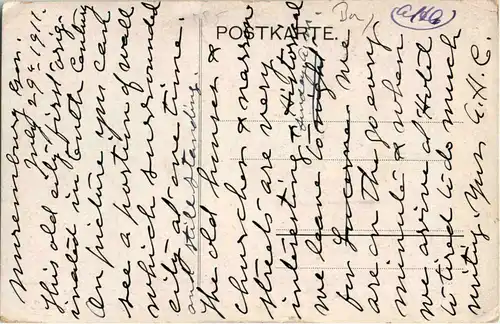 POSTKARTE.
Nuremburg Ger.
July 29 - 1911.
This old city first orig-
inated in 10th Century
On picture you can
see a portion of wall
which surrounded
city at one time.
and still standing.
The old houses &
churches & narrow
streets are very
interesting & Historical
we leave tonight
for Lucerne. We
are on the go every
minute & when
we arrive at Hotel
to tired to do much
writing. Yours E.H.C.